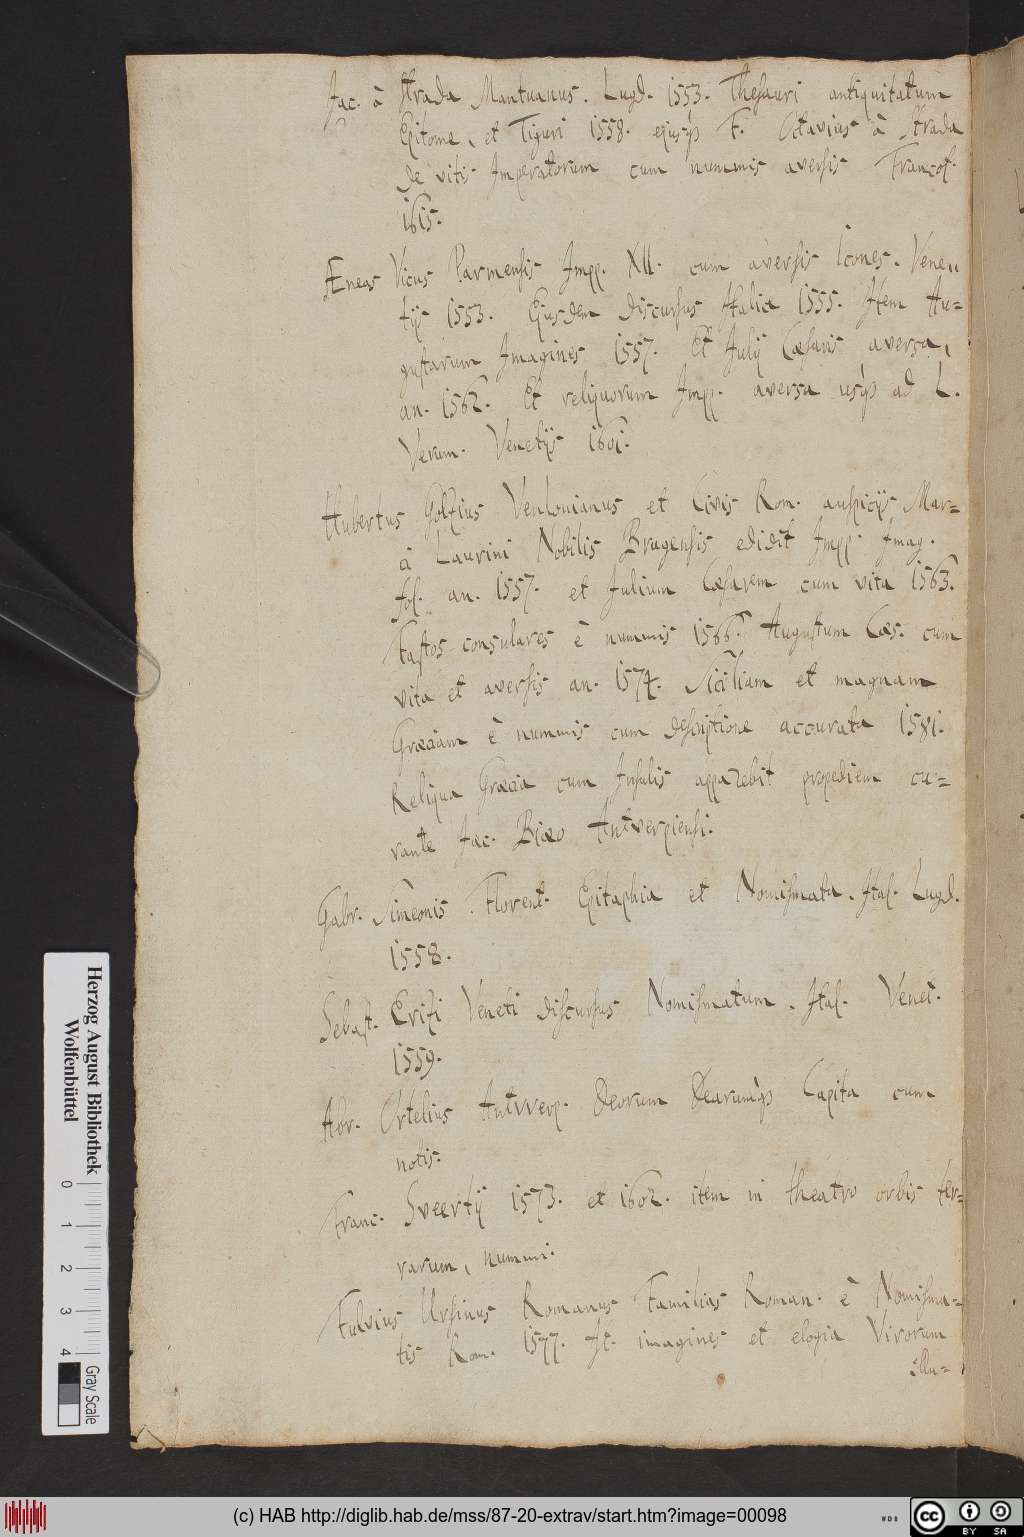 Jac. à Strada Mantuanus. Lugd. 1553. Thesauri antiquitatum
Epitome, et Tiguri 1558. ejusqꝫ F. Octavius à Strada
de vitis Imperatorum cum nummis aversis Francof.
1615.
Æneas Vicus Parmensis Impp. XII. cum aversis Icones. Vene„
tijs 1553. Ejusdem discursus Italicè 1555. Item Au-
gustarum Imagines 1557. Et Julij Cæsaris aversa,
an. 1562. Et reliquorum Impp. aversa usqꝫ ad L.
Verum. Venetijs 1601.
Hubertus Goltzius Venlonianus et Civis Rom. auspicijs Mar=
ci Laurini Nobilis Brugensis edidit Impp. Imag.
fol. an. 1557. et Julium Cæsarem cum vita 1563.
Fastos consulares è nummis 1566. Augustum Cæs. cum
vita et aversis an. 1574. Siciliam et magnam
Græciam è nummis cum descriptione accurata 1581.
Reliqua Græcia cum Insulis apparebit propediem cu-
rante Jac. Biæo Antverpiensi.
Gabr. Simeonis Florent. Epitaphia et Nomismata. Ital. Lugd.
1558.
Sebast. Erizi Veneti discursus Nomismatum. Ital. Venet.
1559.
Abr. Ortelius Antvverp. Deorum Dearumqꝫ Capita cum
notis.
Franc. Sveertij 1573. et 1602. item in theatro orbis ter=
rarum, nummi.
Fulvius Ursinus Romanus Familias Roman. è Nomisma=
tis Rom. 1577. It. imagines et elogia Virorum
illu=
Herzog August Bibliothek
Wolfenbüttel
0 1 2 3 4
Gray Scale
(c) HAB http://diglib.hab.de/mss/87-20-extrav/start.htm?image=00098
cc BY SA